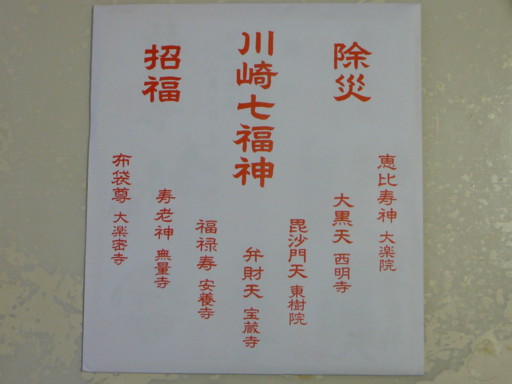 除災
川崎七福神
招福
恵比寿神 大楽院
大黒天 西明寺
毘沙門天 東樹院
弁財天 宝蔵寺
福禄寿 安養寺
寿老神 無量寺
布袋尊 大楽密寺